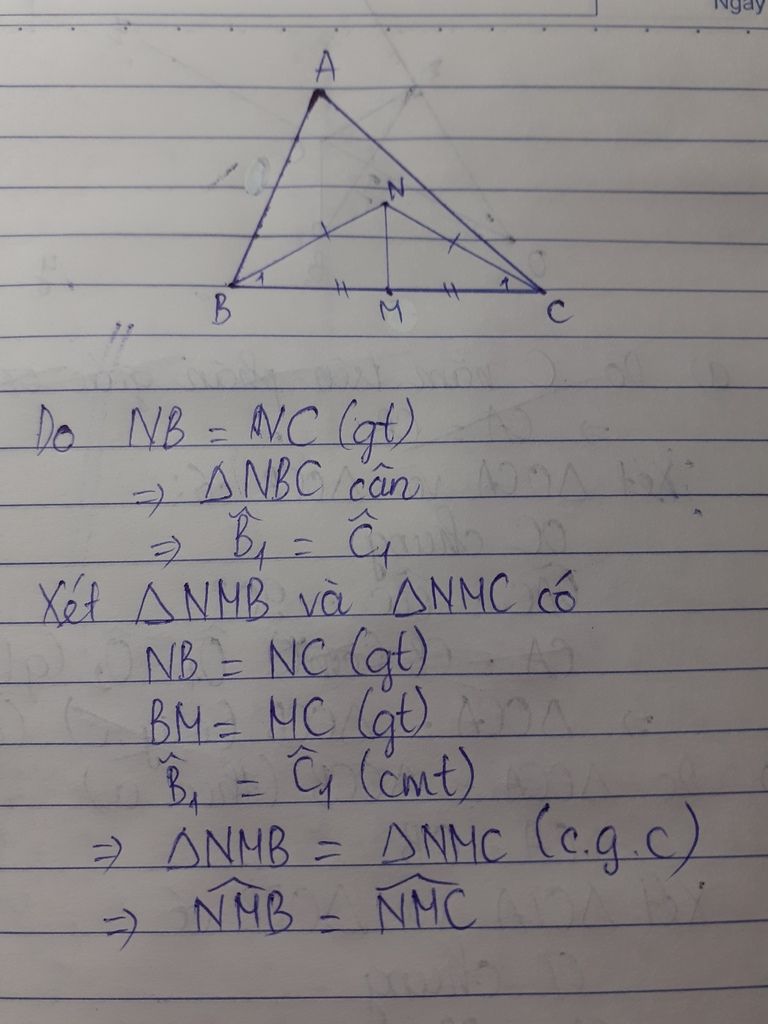 Ngày
A
N
1
1
B
M
C
Do NB = NC (gt)
=> ΔNBC cân
=> B̂₁ = Ĉ₁
Xét ΔNMB và ΔNMC có
NB = NC (gt)
BM = MC (gt)
B̂₁ = Ĉ₁ (cmt)
=> ΔNMB = ΔNMC (c.g.c)
=> \widehat{NMB} = \widehat{NMC}